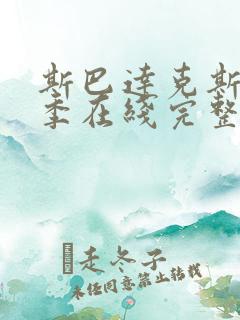 斯巴达克斯
季在线完整
走冬子
未经同意禁止转载